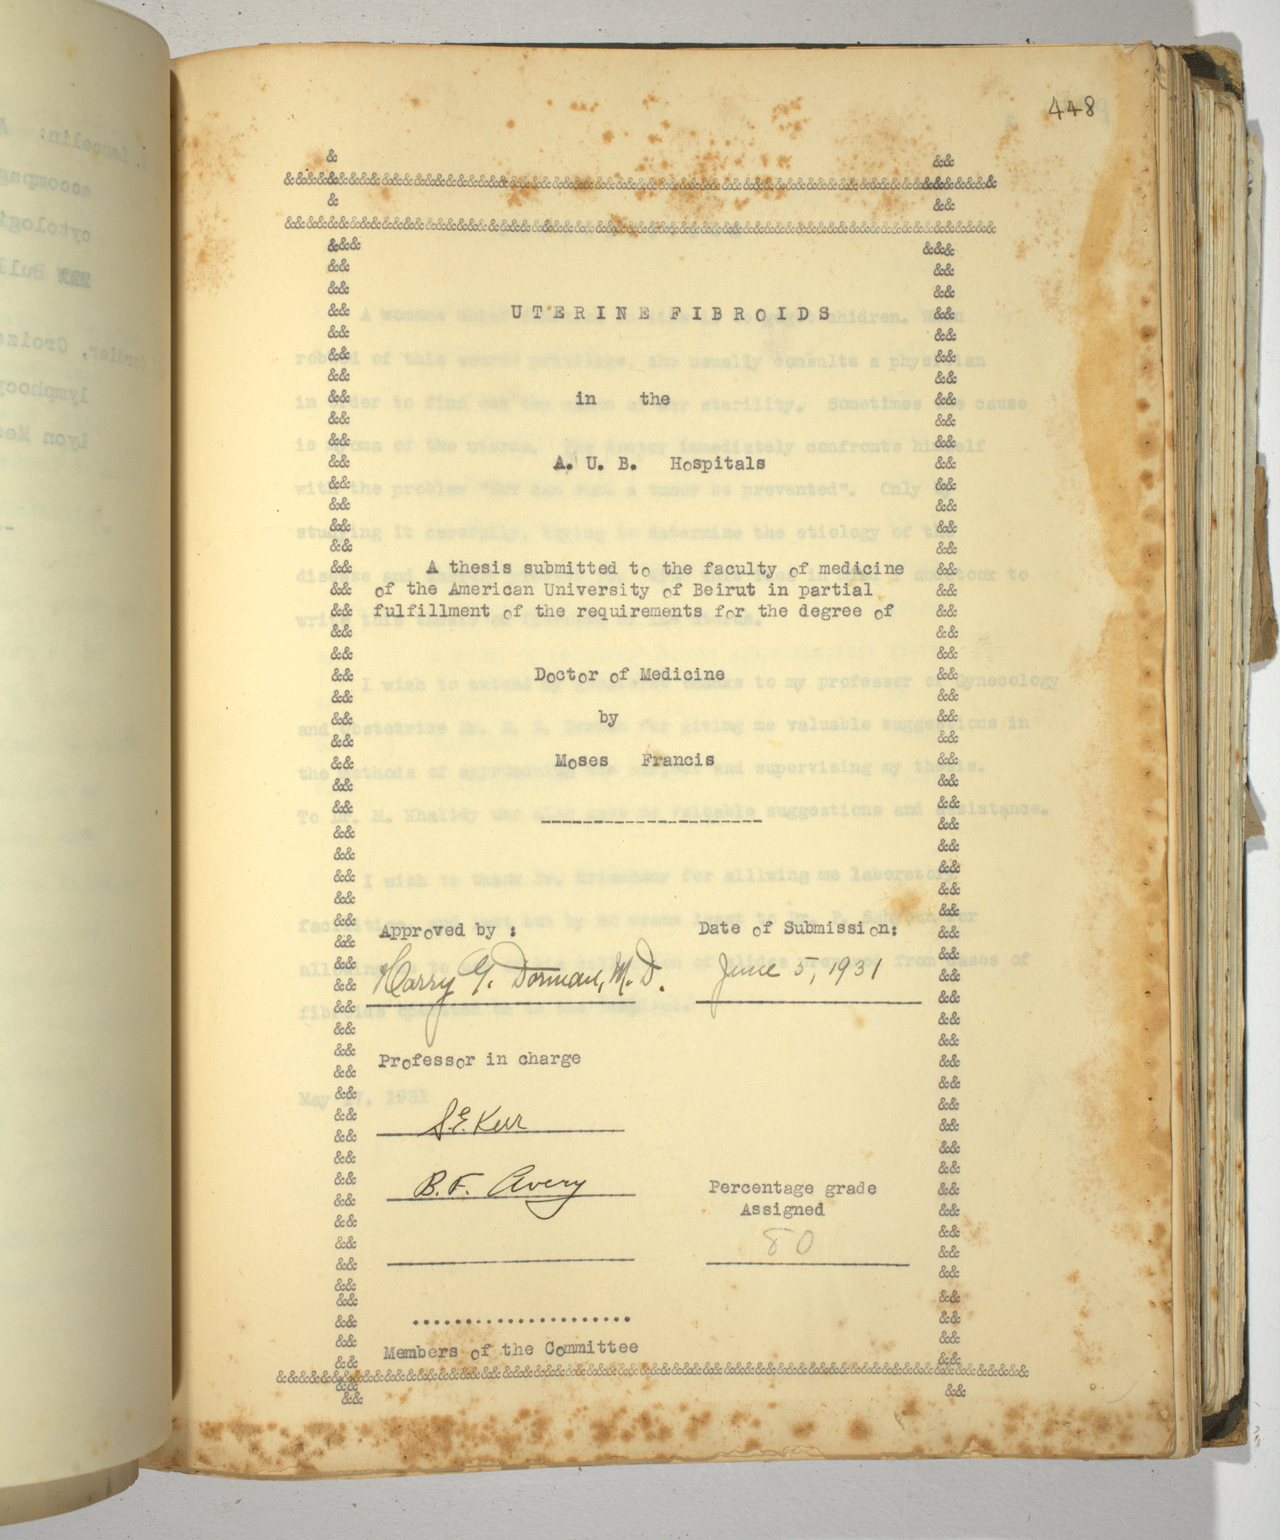 448
UTERINE FIBROIDS
in the
A. U. B. Hospitals
A thesis submitted to the faculty of medicine
of the American University of Beirut in partial
fulfillment of the requirements for the degree of
Doctor of Medicine
by
Moses Francis
Approved by :
Date of Submission:
Harry G. Dorman, M.D.
June 5, 1931
Professor in charge
S.E. Kerr
B.F. Avery
Percentage grade
Assigned
80
Members of the Committee